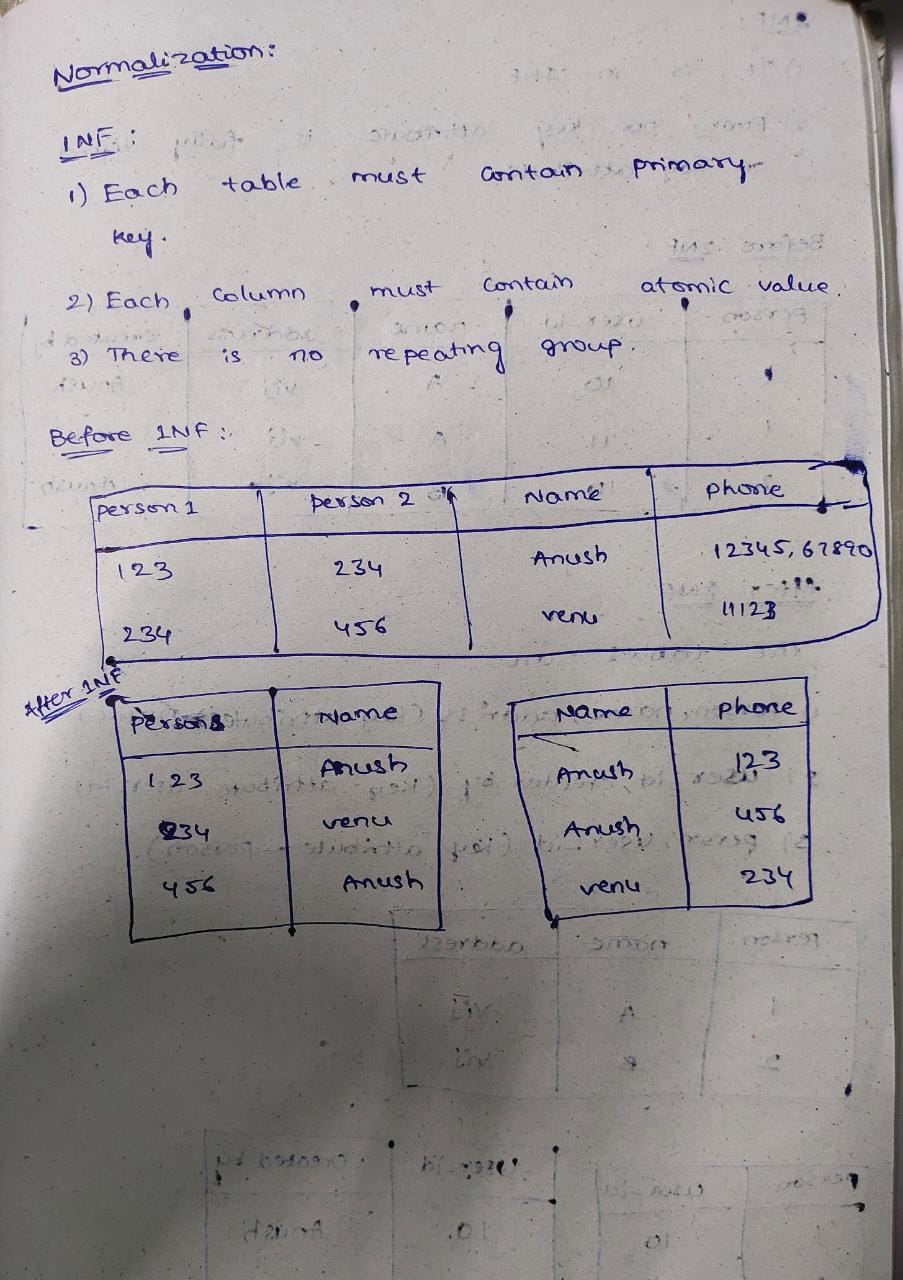 Normalization:
1NF :
1) Each table must contain primary
key.
2) Each column must contain atomic value.
3) There is no repeating group.
Before 1NF :
person 1 person 2 Name phone
123 234 Anush 12345, 67890
234 456 venu 11123
After 1NF
persons Name
123 Anush
234 venu
456 Anush
Name phone
Anush 123
Anush 456
venu 234